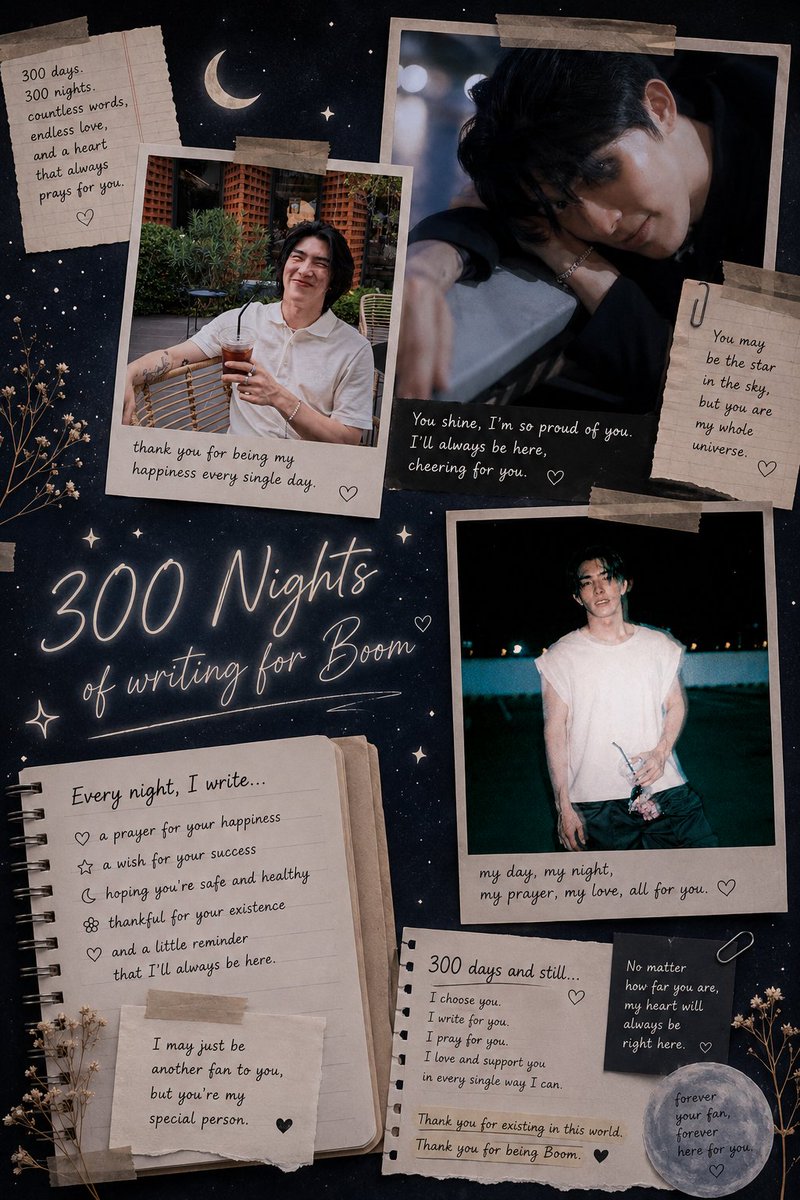 300 days.
300 nights.
countless words,
endless love,
and a heart
that always
prays for you.
thank you for being my
happiness every single day.
You shine, I'm so proud of you.
I'll always be here,
cheering for you.
You may
be the star
in the sky,
but you are
my whole
universe.
300 Nights
of writing for Boom
my day, my night,
my prayer, my love, all for you.
Every night, I write...
a prayer for your happiness
a wish for your success
hoping you're safe and healthy
thankful for your existence
and a little reminder
that I'll always be here.
I may just be
another fan to you,
but you're my
special person.
300 days and still...
I choose you.
I write for you.
I pray for you.
I love and support you
in every single way I can.
Thank you for existing in this world.
Thank you for being Boom.
No matter
how far you are,
my heart will
always be
right here.
forever
your fan,
forever
here for you.